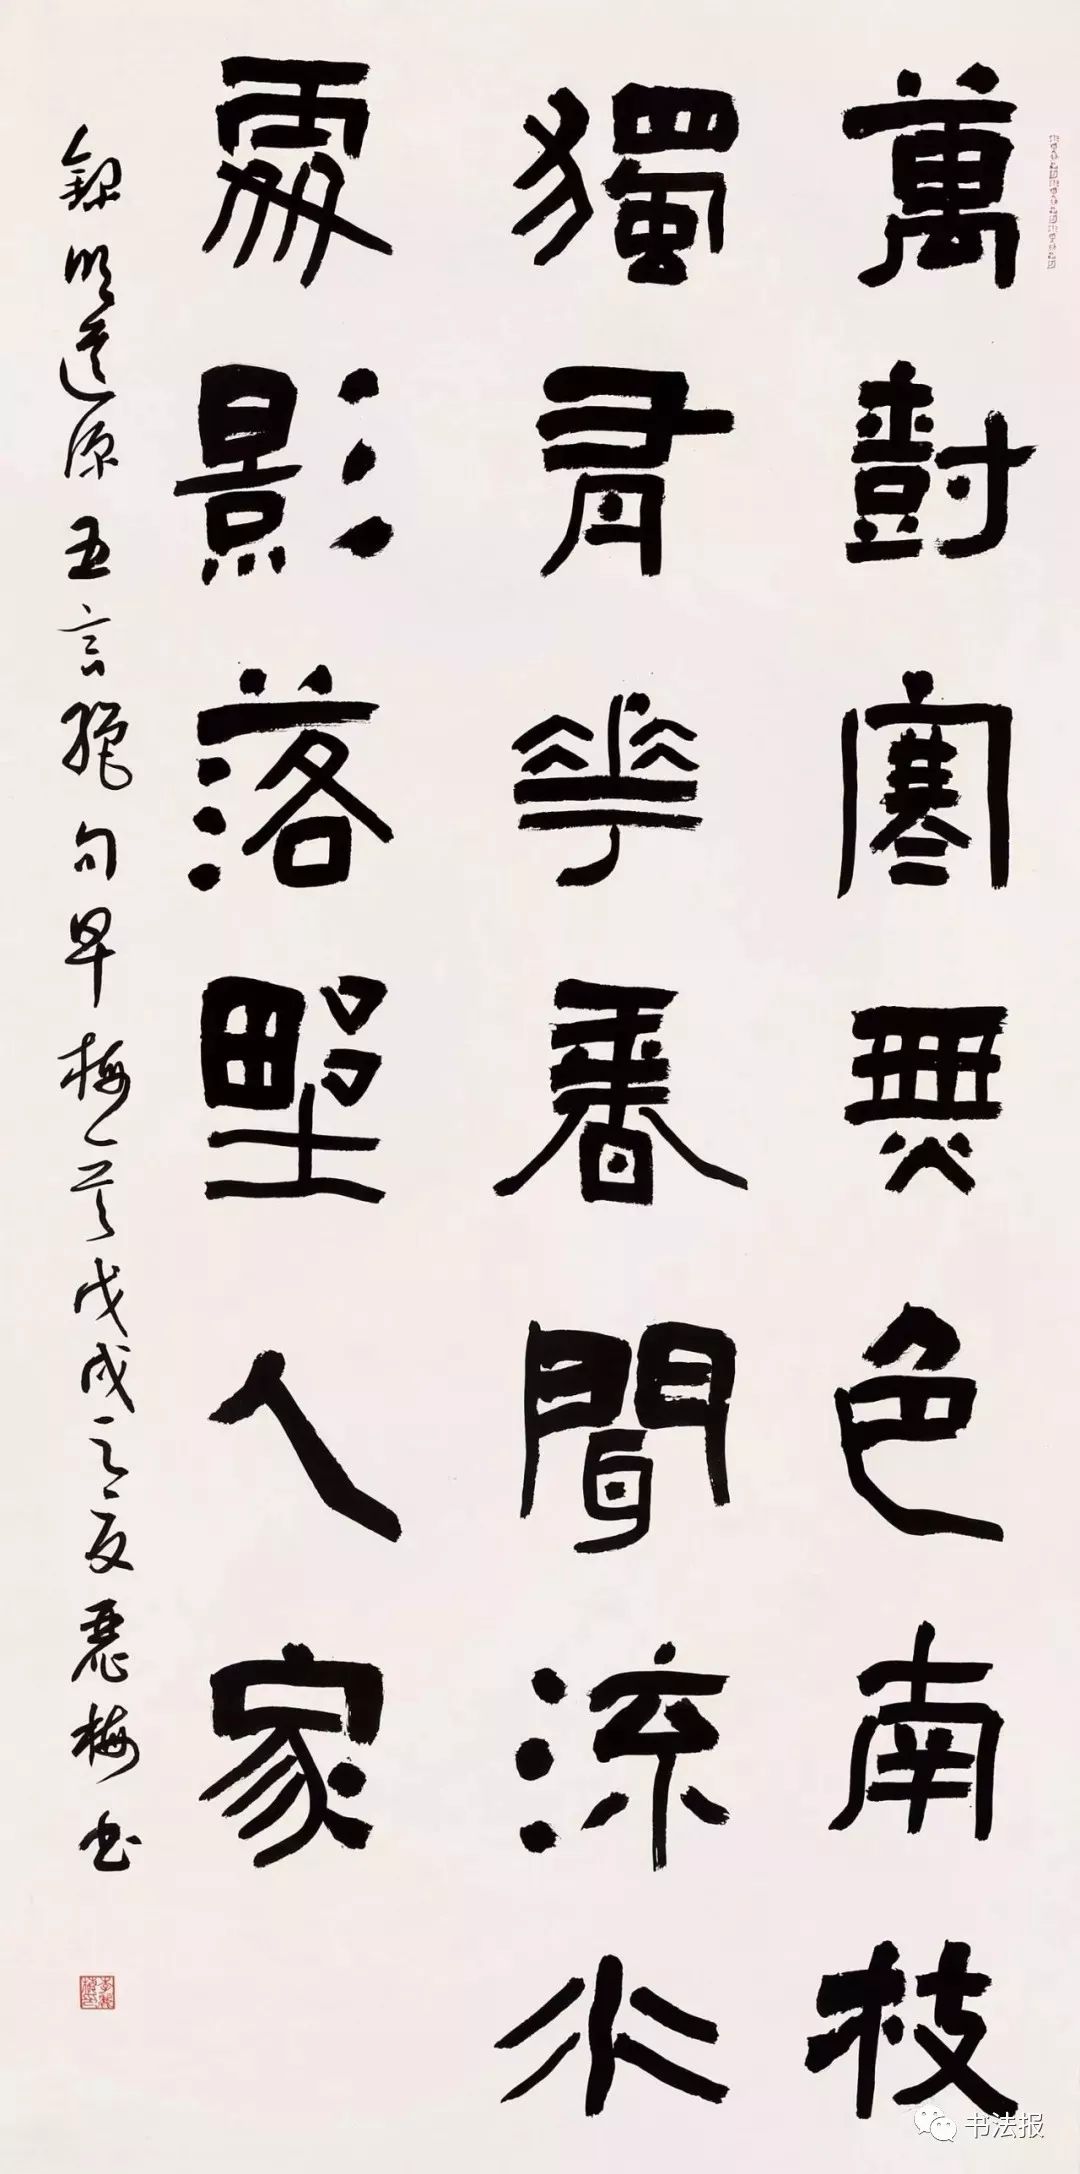 萬樹寒無色南枝
獨有花香聞流水
處影落野人家
錄明道源五言絕句早梅一首戊戌之夏麗梅书
书法报